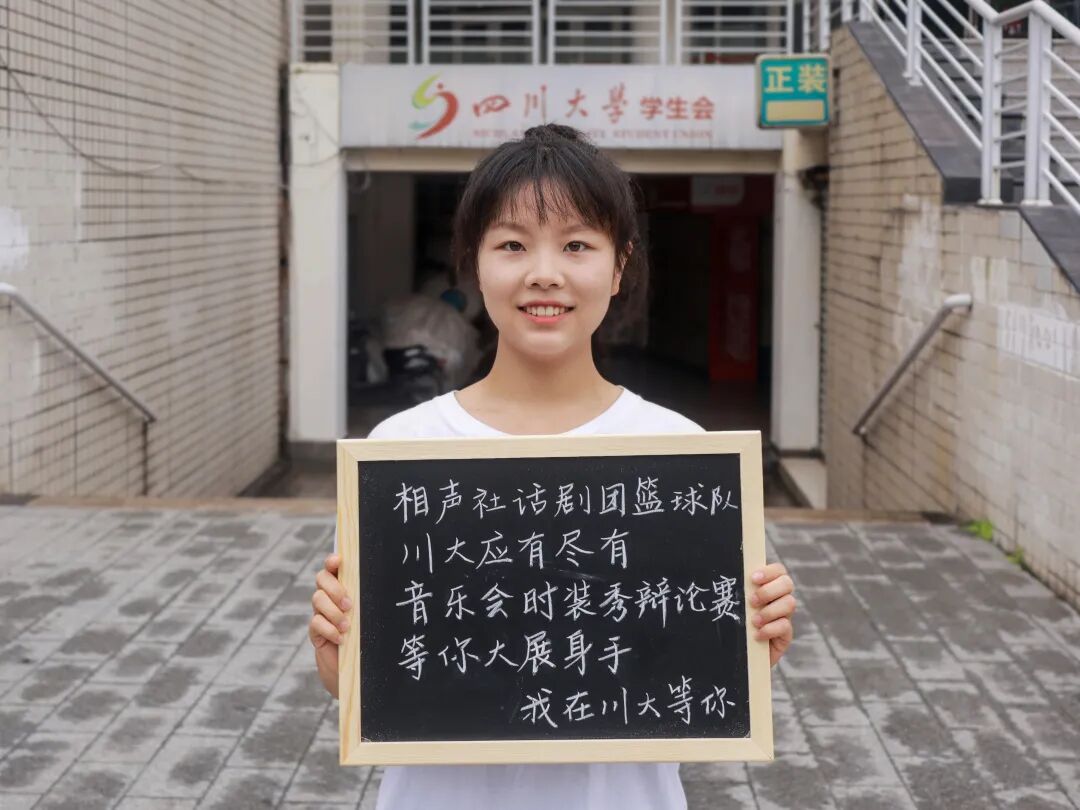 四川大学学生会
STUDENT UNION
正装
相声社话剧团篮球队
川大应有尽有
音乐会时装秀辩论赛
等你大展身手
我在川大等你